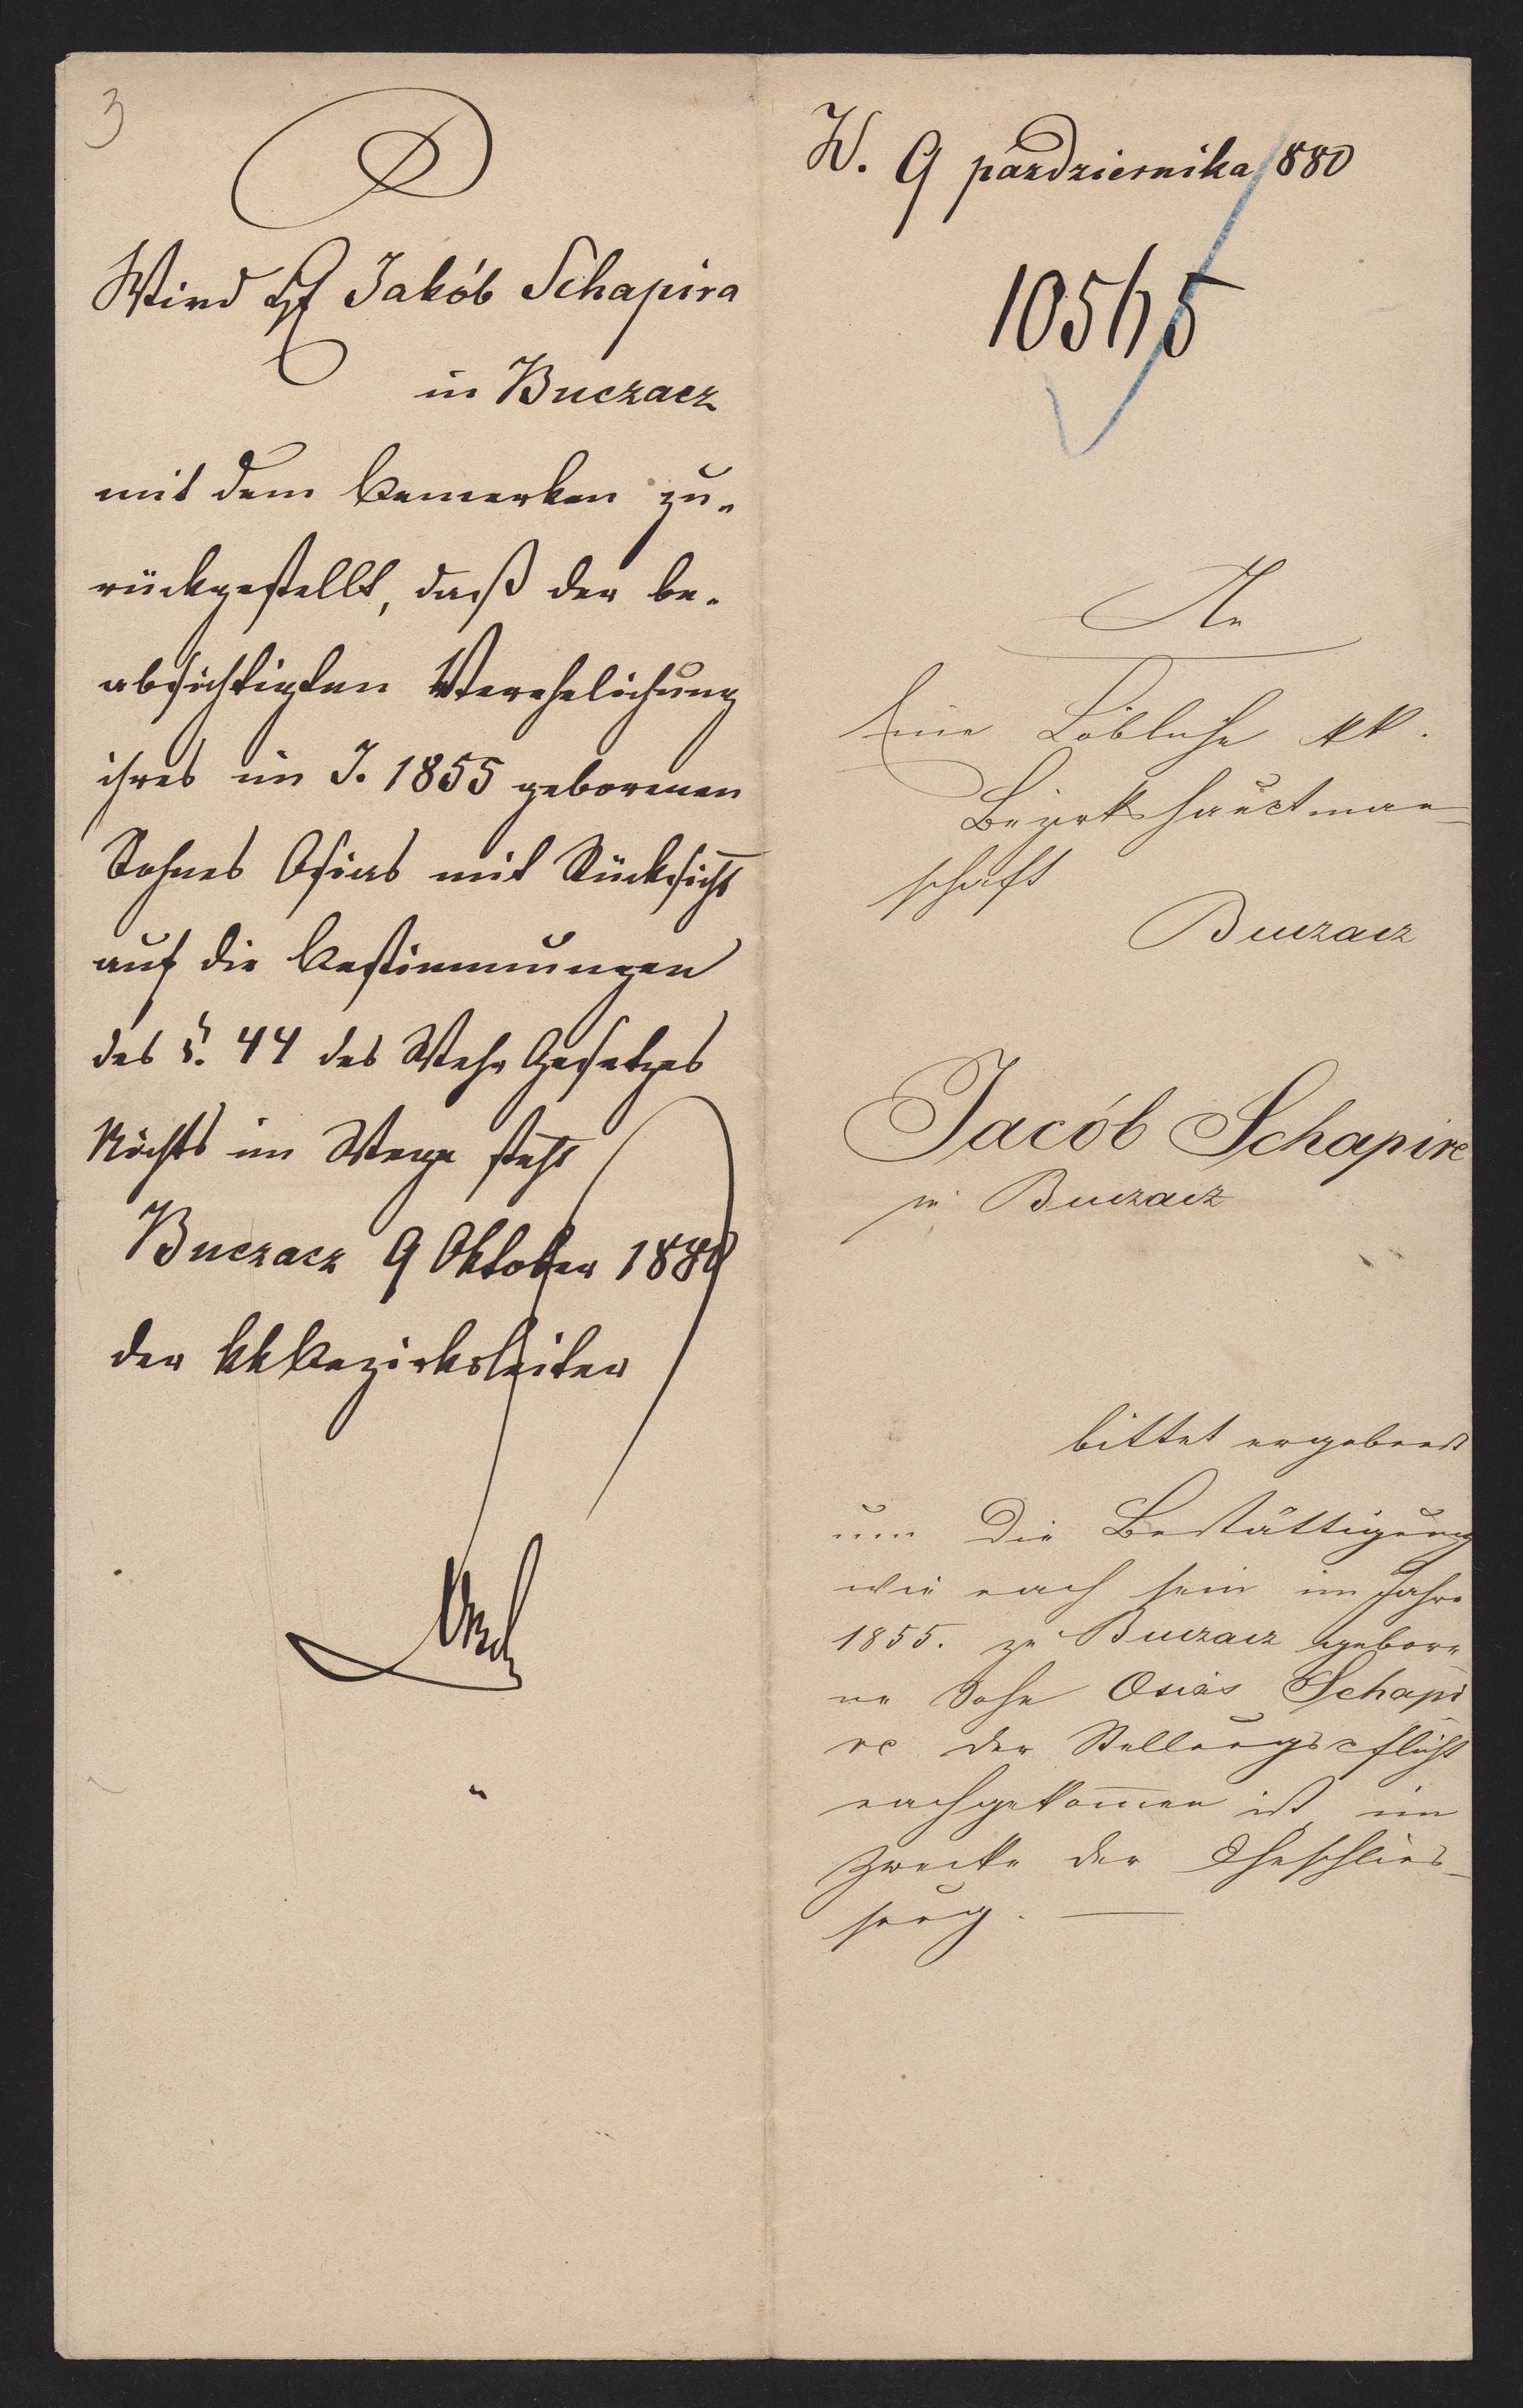 3
Wird H Jakób Schapira
in Buczacz
mit dem Bemerken zu-
rückgestellt, daß der be-
absichtigten Verehelichung
ihres im J. 1855 geborenen
Sohnes Osias mit Rücksicht
auf die Bestimmungen
des §. 44 des Wehr Gesetzes
Nichts im Wege steht
Buczacz 9 Oktober 1880
der kk Bezirksleiter
W. 9 października 1880
10545
An
Eine Löbliche kk.
Bezirkshauptman-
schaft
Buczacz
Jacób Schapire
in Buczacz
bittet ergebenst
um die Bestättigung
wie nach sein im Jahre
1855. zu Buczacz gebore
ne Sohn Osias Schapi
re der Stellungspflicht
nachgekommen ist im
Zwecke der Eheschlies-
sung.